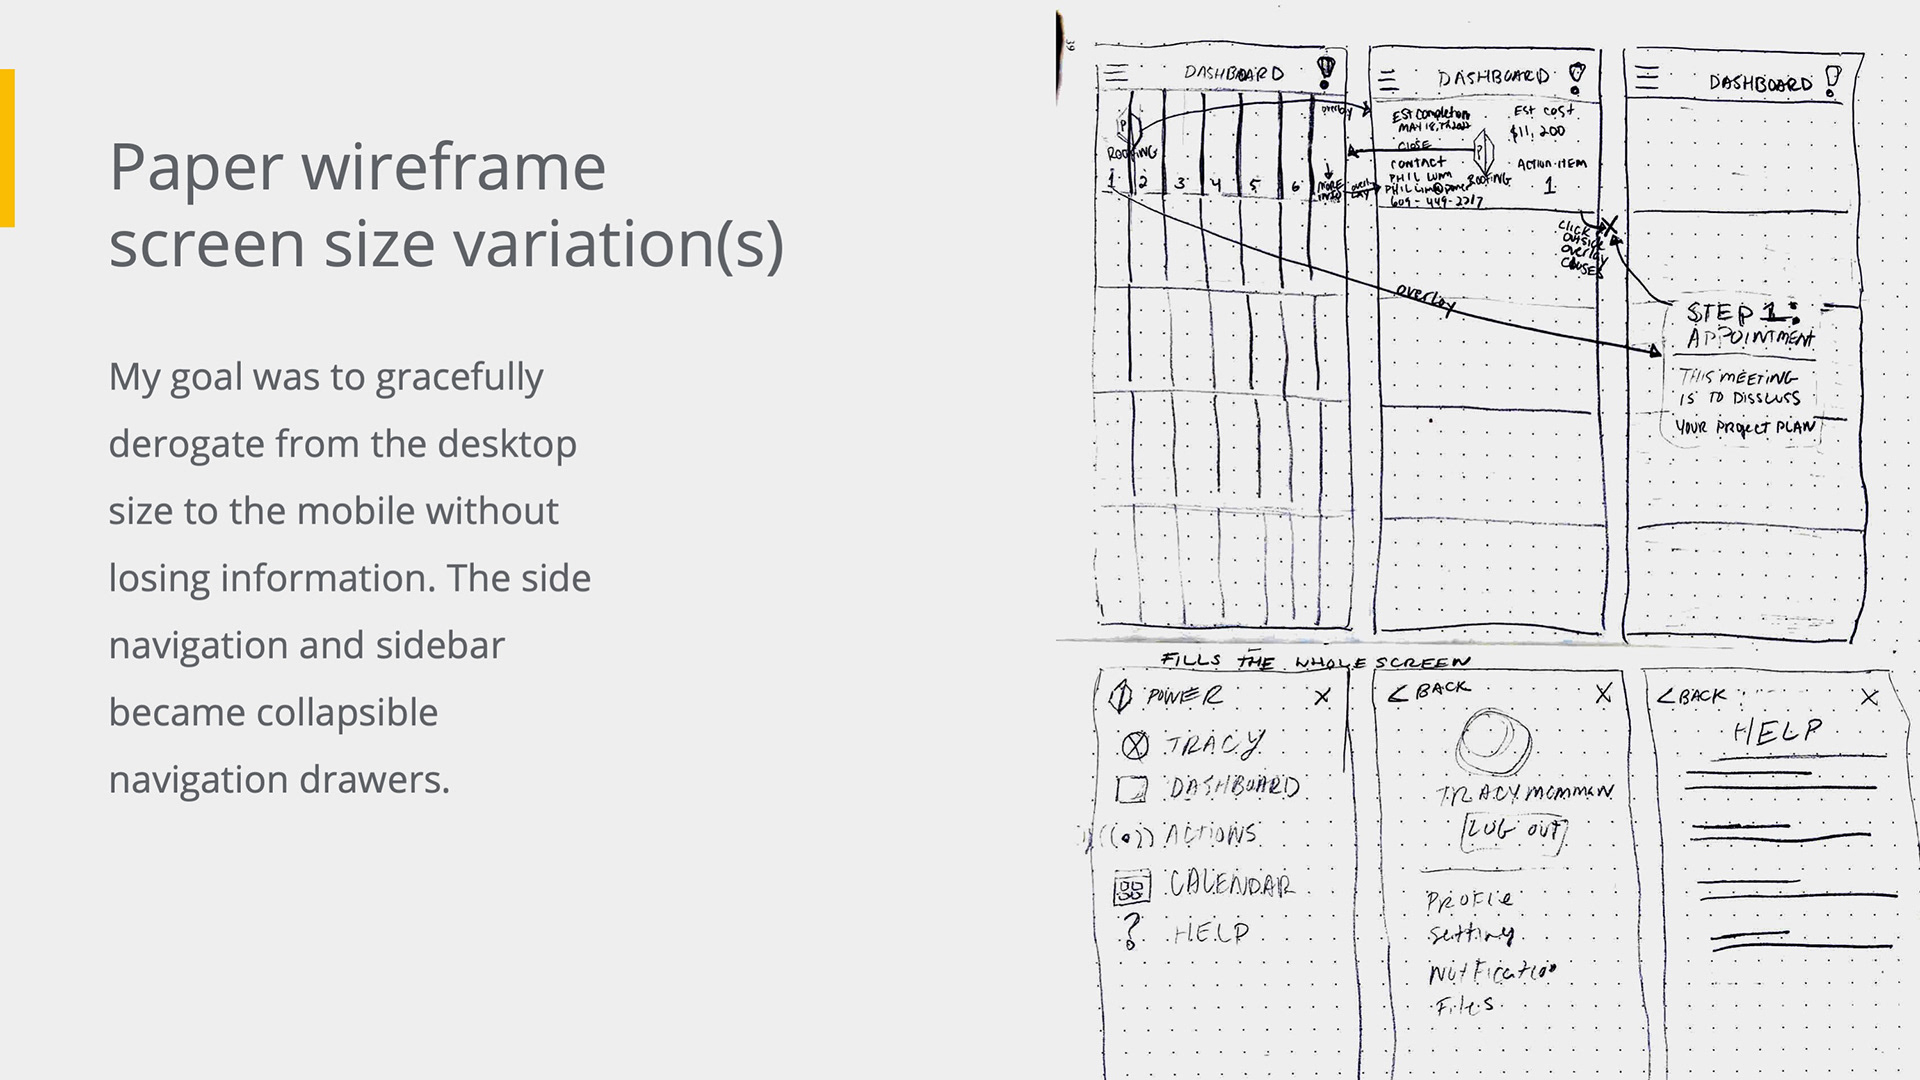 Paper wireframe
screen size variation(s)
My goal was to gracefully
derogate from the desktop
size to the mobile without
losing information. The side
navigation and sidebar
became collapsible
navigation drawers.
39
DASHBOARD
overlay
P
ROOFING
1 2 3 4 5 6
MORE
INFO
overlay
DASHBOARD
EST Completion
MAY 18,
CLOSE
CONTACT
PHIL LUM
609-449-2217
Est cost
$11,200
P
ROOFING
ACTION ITEM
1
CLICK
OUTSIDE
overlay
CLOSES
X
overlay
DASHBOARD
STEP 1:
APPOINTMENT
THIS MEETING
IS TO DISSCUSS
YOUR PROJECT PLAN
FILLS THE WHOLE SCREEN
POWER X
TRACY
DASHBOARD
((•)) ACTIONS
CALENDAR
? HELP
< BACK X
LOG OUT
PROFILE
Setting
Notification
Files
< BACK X
HELP